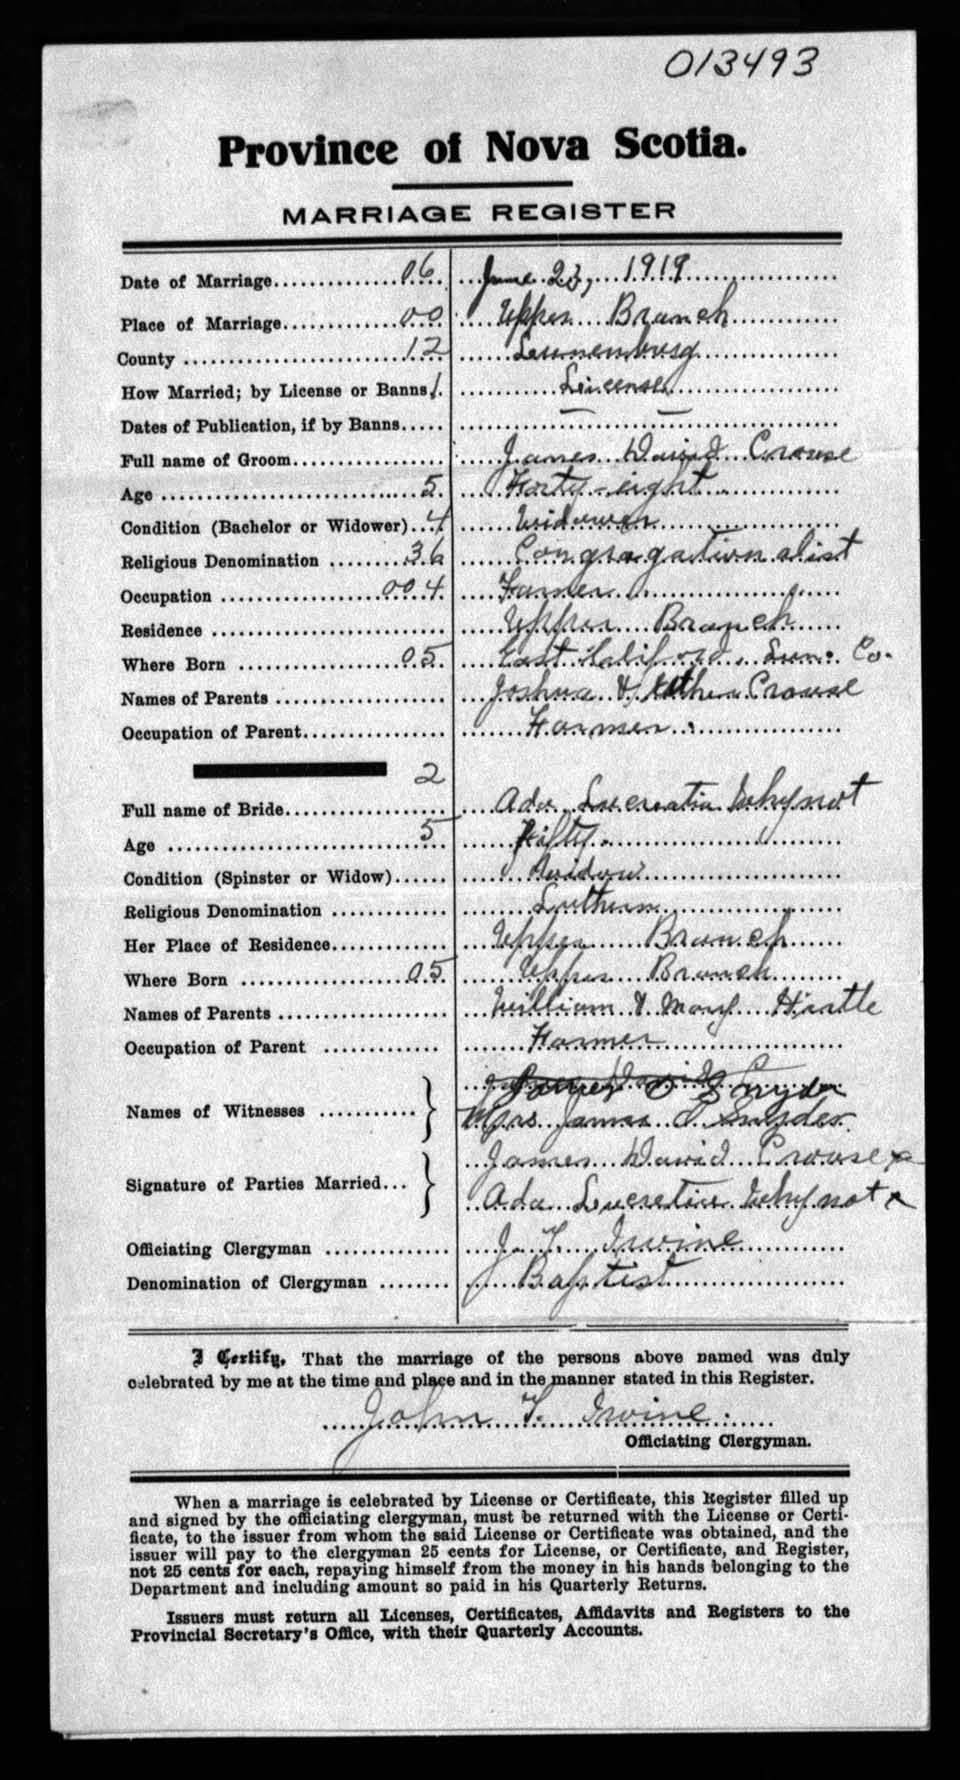 013493
Province of Nova Scotia.
MARRIAGE REGISTER
Date of Marriage 06 June 23, 1919
Place of Marriage 00 Upper Branch
County 12 Lunenburg
How Married; by License or Banns 1 License
Dates of Publication, if by Banns — —
Full name of Groom James David Crouse
Age 5 Forty-eight
Condition (Bachelor or Widower) 4 Widower
Religious Denomination 36 Congregationalist
Occupation 004 Farmer
Residence Upper Branch
Where Born 05 East Lun. Co.
Names of Parents Joshua & Crouse
Occupation of Parent Farmer
2
Full name of Bride Ada Lucretia Whynot
Age 5 Fifty
Condition (Spinster or Widow) Widow
Religious Denomination Lutheran
Her Place of Residence Upper Branch
Where Born 05 Upper Branch
Names of Parents William & Mary Hirtle
Occupation of Parent Farmer
James David C
James O Snyder
Names of Witnesses Mrs. James O Snyder
Signature of Parties Married James David Crouse x
Ada Lucretia Whynot x
Officiating Clergyman J. F. Irvine
Denomination of Clergyman Baptist
I Certify, That the marriage of the persons above named was duly
celebrated by me at the time and place and in the manner stated in this Register.
John F. Irvine
Officiating Clergyman.
When a marriage is celebrated by License or Certificate, this Register filled up
and signed by the officiating clergyman, must be returned with the License or Certi-
ficate, to the issuer from whom the said License or Certificate was obtained, and the
issuer will pay to the clergyman 25 cents for License, or Certificate, and Register,
not 25 cents for each, repaying himself from the money in his hands belonging to the
Department and including amount so paid in his Quarterly Returns.
Issuers must return all Licenses, Certificates, Affidavits and Registers to the
Provincial Secretary's Office, with their Quarterly Accounts.